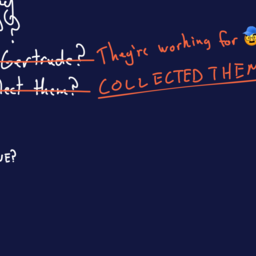 ?
Gertrude? They're working for
lect them? COLLECTED THEM
UE?